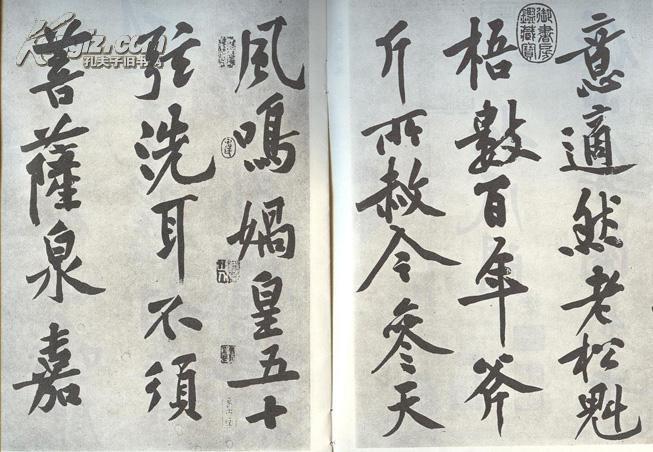 意適然老松魁
梧數百年斧
斤所赦今參天
風鳴媧皇五十
弦洗耳不須
菩薩泉嘉
御書房
鑑藏寶
Kfzj.com
孔夫子旧书网